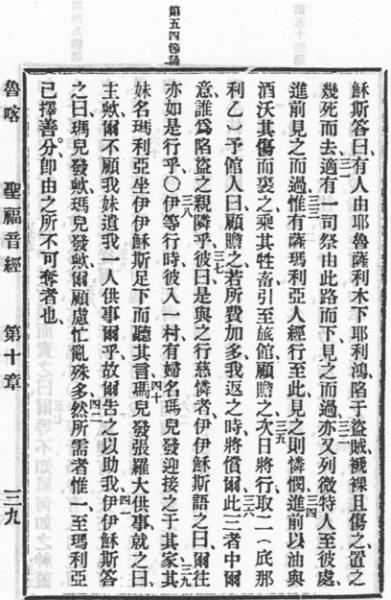 第五四節誦
穌斯答曰有人由耶魯薩利木下耶利鴻陷于盜賊褫裸且傷之置之
幾死而去適有一司祭由此路而下見之而過亦又列微特人至彼處
進前見之而過惟有薩瑪利亞人經行至此見之則憐憫進前以油與
酒沃其傷而裹之乘其牲畜引至旅館顧瞻之次日將行取二（底那
利乙）予館人曰顧瞻之若所費加多我返之時將償爾此三者中爾
意誰爲陷盜之親隣乎彼曰是與之行慈憐者伊伊穌斯語之曰爾往
亦如是行乎〇伊等行時彼入一村有婦名瑪兒發迎接之于其家其
妹名瑪利亞坐伊伊穌斯足下而聽其言瑪兒發張羅大供事就之曰
主歟爾不顧我妹遺我一人供事爾乎故爾告之以助我伊伊穌斯答
之曰瑪兒發歟瑪兒發歟爾顧慮忙亂殊多然所需者惟一至瑪利亞
已擇善分卽由之所不可奪者也
魯喀 聖福音經 第十章 三九